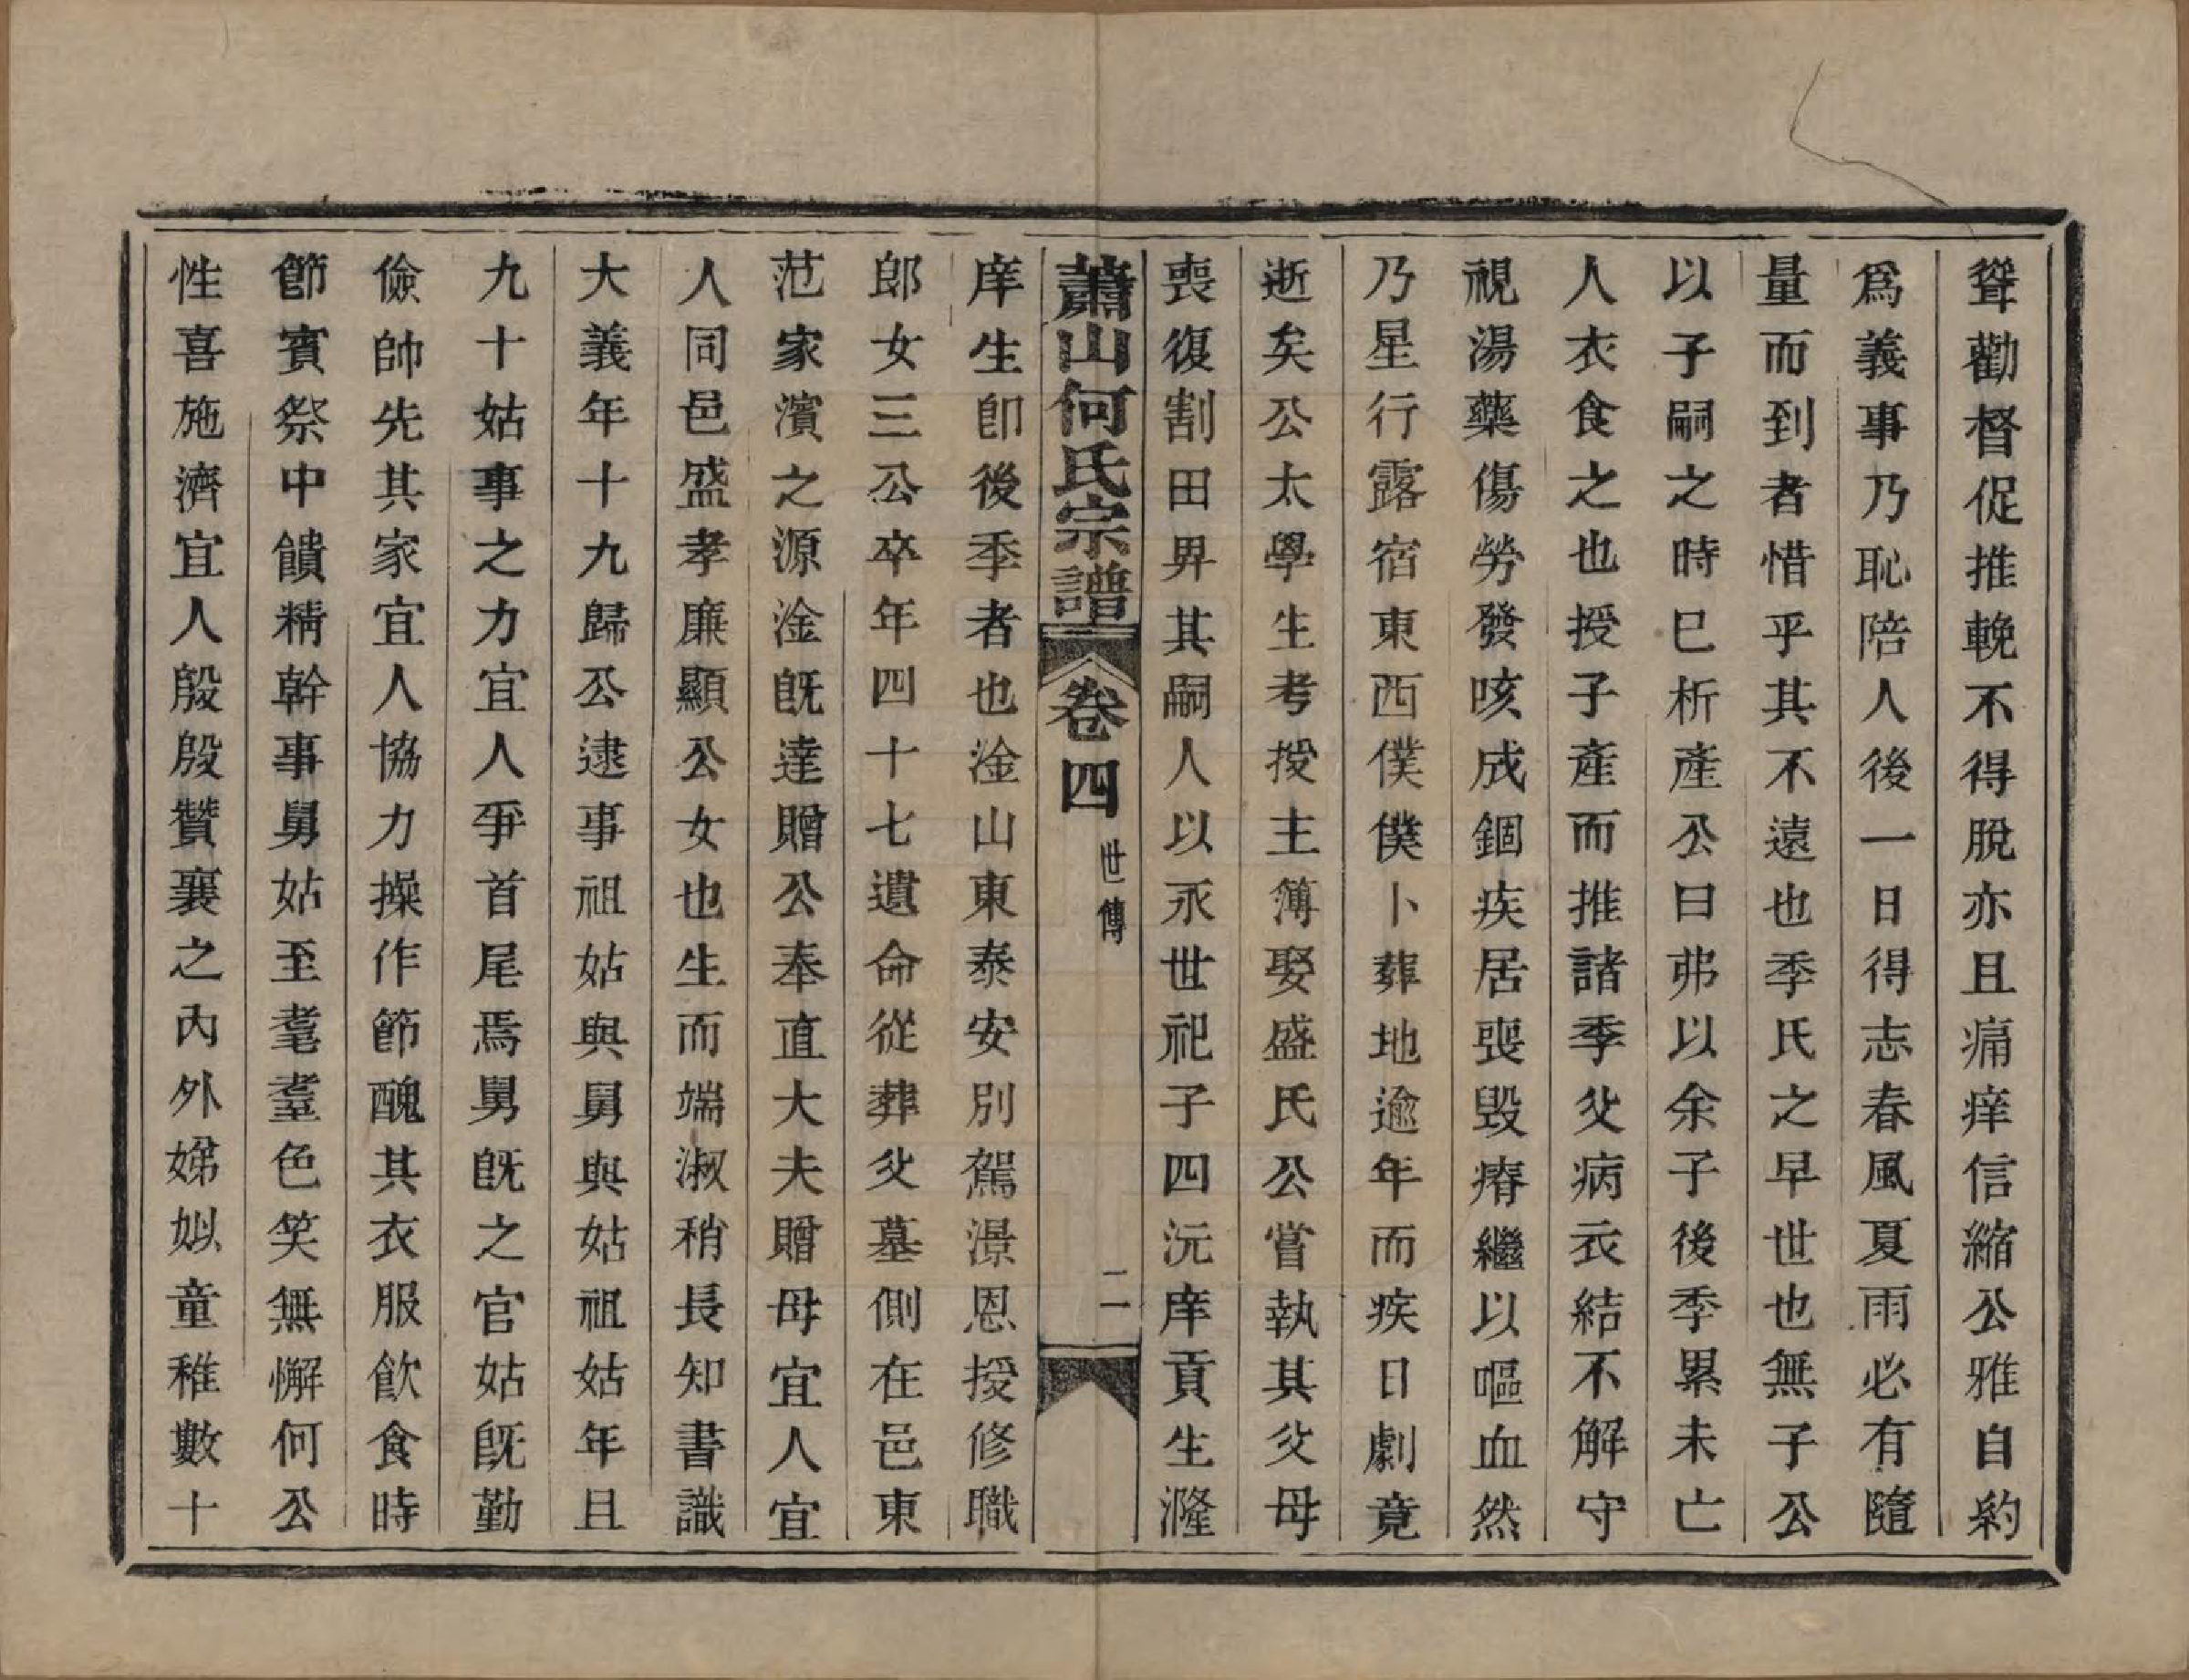 聳勸督促推輓不得脫亦且痛痒信縮公雅自約
爲義事乃恥陪人後一日得志春風夏雨必有隨
量而到者惜乎其不遠也季氏之早世也無子公
以子嗣之時巳析產公曰弗以余子後季累未亡
人衣食之也授子產而推諸季父病衣結不解守
視湯藥傷勞發咳成錮疾居喪毀瘠繼以嘔血然
乃星行露宿東西僕僕卜葬地逾年而疾日劇竟
逝矣公太學生考授主簿娶盛氏公嘗執其父母
喪復割田畀其嗣人以永世祀子四沅庠貢生漋
蕭山何氏宗譜 卷四 世傳 二
庠生卽後季者也淦山東泰安別駕澋恩授修職
郎女三公卒年四十七遺命從葬父墓側在邑東
范家濱之源淦旣達贈公奉直大夫贈母宜人宜
人同邑盛孝廉顯公女也生而端淑稍長知書識
大義年十九歸公逮事祖姑與舅與姑祖姑年且
九十姑事之力宜人爭首尾焉舅旣之官姑旣勤
儉帥先其家宜人協力操作節醜其衣服飲食時
節賓祭中饋精幹事舅姑至耄耋色笑無懈何公
性喜施濟宜人殷殷贊襄之內外娣姒童稚數十